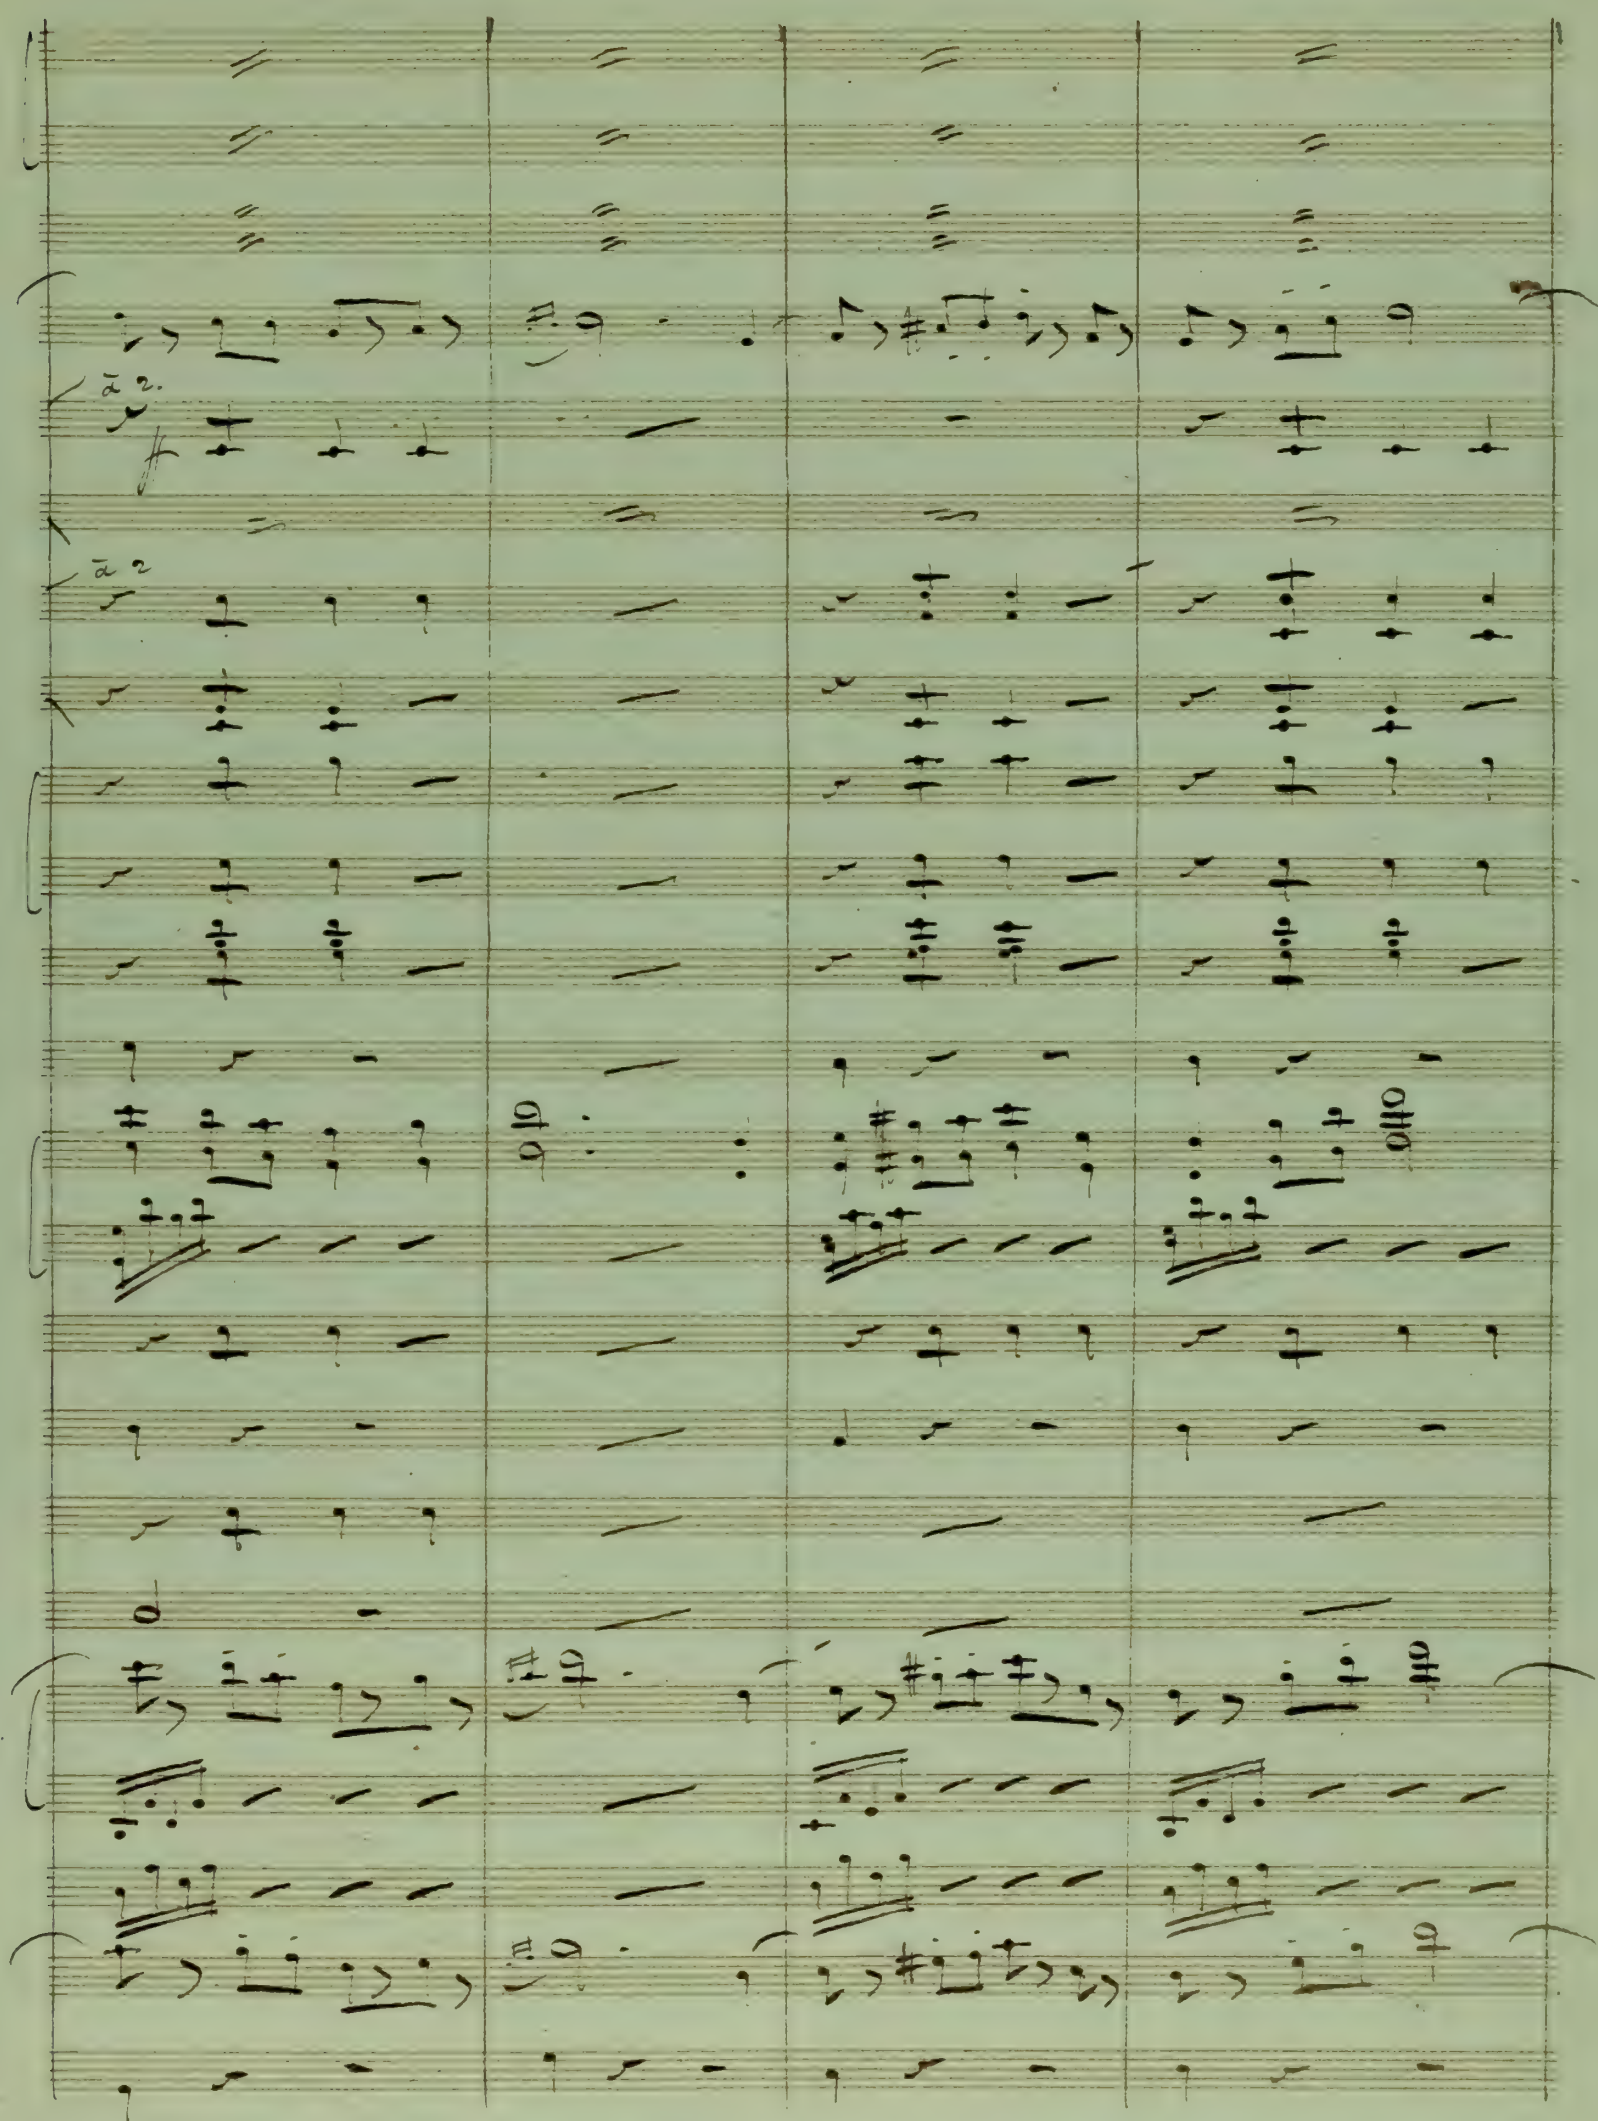 a 2.
ff
a 2